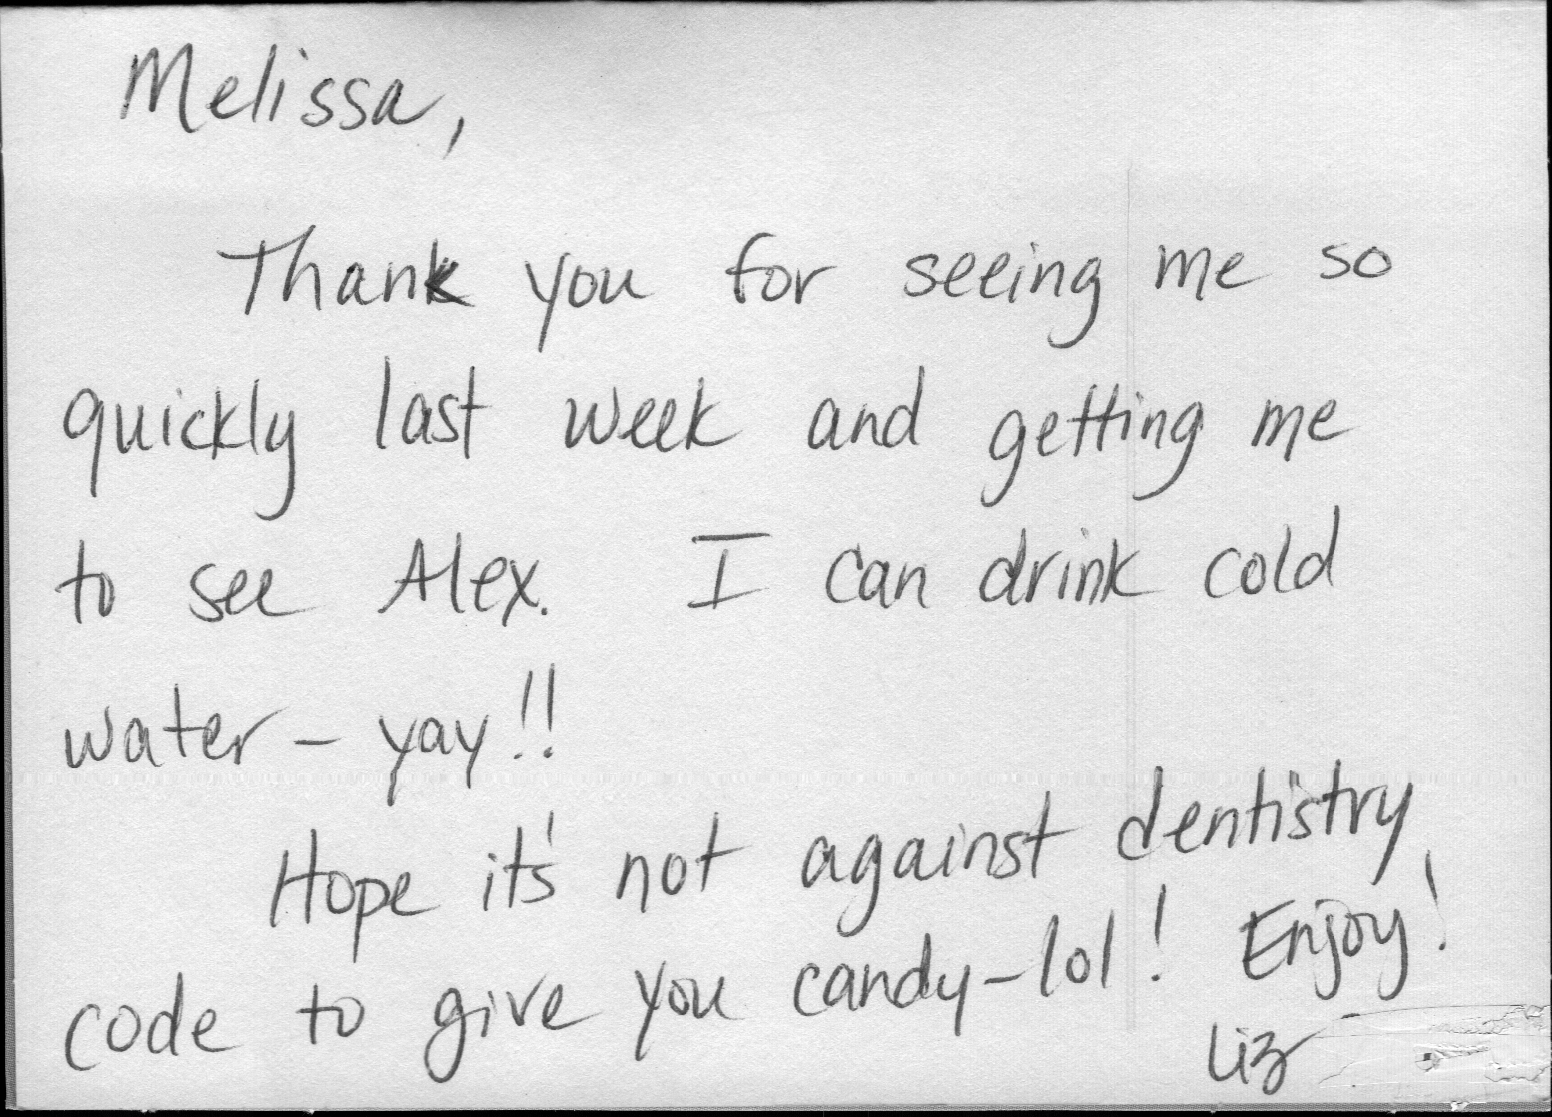 Melissa,
Thank you for seeing me so
quickly last week and getting me
to see Alex. I can drink cold
water - yay!!
Hope it's not against dentistry
code to give you candy - lol! Enjoy!
Liz